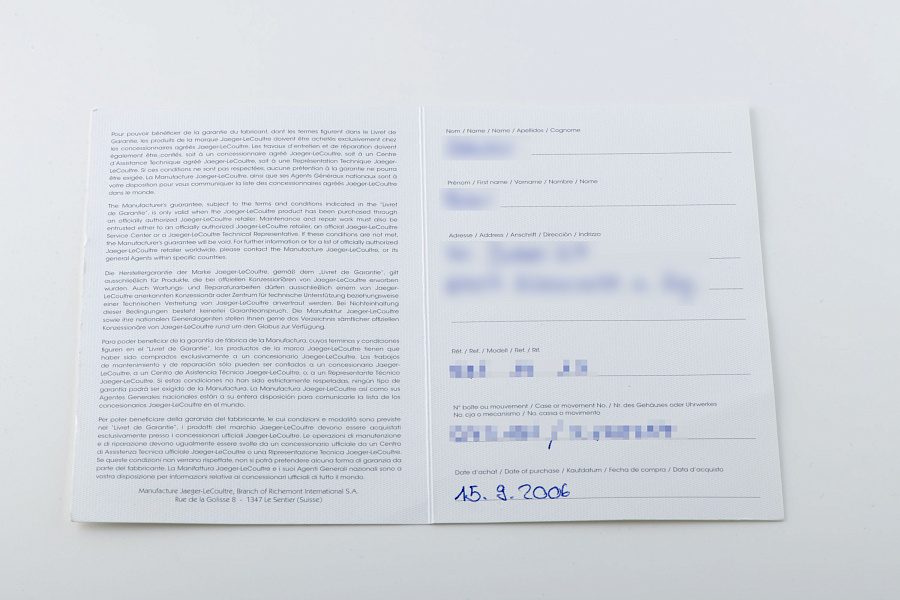 Pour pouvoir bénéficier de la garantie du fabricant, dont les termes figurent dans le Livret de
Garantie, les produits de la marque Jaeger-LeCoultre doivent être achetés exclusivement chez
les concessionnaires agréés Jaeger-LeCoultre. Les travaux d'entretien et de réparation doivent
également être confiés, soit à un concessionnaire agréé Jaeger-LeCoultre, soit à un Centre
d'Assistance Technique agréé Jaeger-LeCoultre, soit à une Représentation Technique Jaeger-
LeCoultre. Si ces conditions ne sont pas respectées, aucune prétention à la garantie ne pourra
être exigée. La Manufacture Jaeger-LeCoultre, ainsi que ses Agents Généraux nationaux sont à
votre disposition pour vous communiquer la liste des concessionnaires agréés Jaeger-LeCoultre
dans le monde.
The Manufacturer's guarantee, subject to the terms and conditions indicated in the "Livret
de Garantie", is only valid when the Jaeger-LeCoultre product has been purchased through
an officially authorized Jaeger-LeCoultre retailer. Maintenance and repair work must also be
entrusted either to an officially authorized Jaeger-LeCoultre retailer, an official Jaeger-LeCoultre
Service Center or a Jaeger-LeCoultre Technical Representative. If these conditions are not met,
the Manufacturer's guarantee will be void. For further information or for a list of officially authorized
Jaeger-LeCoultre retailer worldwide, please contact the Manufacture Jaeger-LeCoultre, or its
general Agents within specific countries.
Die Herstellergarantie der Marke Jaeger-LeCoultre, gemäß dem „Livret de Garantie", gilt
ausschließlich für Produkte, die bei offiziellen Konzessionären von Jaeger-LeCoultre erworben
wurden. Auch Wartungs- und Reparaturarbeiten dürfen ausschließlich einem von Jaeger-
LeCoultre anerkannten Konzessionär oder Zentrum für technische Unterstützung beziehungsweise
einer Technischen Vertretung von Jaeger-LeCoultre anvertraut werden. Bei Nichteinhaltung
dieser Bedingungen besteht keinerlei Garantieanspruch. Die Manufaktur Jaeger-LeCoultre
sowie ihre nationalen Generalagenten stellen Ihnen gerne das Verzeichnis sämtlicher offiziellen
Konzessionäre von Jaeger-LeCoultre rund um den Globus zur Verfügung.
Para poder beneficiar de la garantía de fábrica de la Manufactura, cuyos terminos y condiciones
figuren en el "Livret de Garantie", los productos de la marca Jaeger-LeCoultre tienen que
haber sido comprados exclusivamente a un concesionario Jaeger-LeCoultre. Los trabajos
de mantenimiento y de reparación sólo pueden ser confiados a un concesionario Jaeger-
LeCoultre, a un Centro de Asistencia Técnica Jaeger-LeCoultre, o, a un Representante Técnico
Jaeger-LeCoultre. Si estas condiciones no han sido estrictamente respetadas, ningún tipo de
garantía podrá ser exigido de la Manufactura. La Manufactura Jaeger-LeCoultre así como sus
Agentes Generales nacionales están a su entera disposición para comunicarle la lista de los
concesionarios Jaeger-LeCoultre en el mundo.
Per poter beneficiare della garanzia del fabbricante, le cui condizioni e modalità sono previste
nel "Livret de Garantie", i prodotti del marchio Jaeger-LeCoultre devono essere acquistati
esclusivamente presso i concessionari ufficiali Jaeger-LeCoultre. Le operazioni di manutenzione
e di riparazione devono ugualmente essere svolte da un concessionario ufficiale o da un Centro
di Assistenza Tecnica ufficiale Jaeger-LeCoultre o una Ripresentazione Tecnica Jaeger-LeCoultre.
Se queste condizioni non vierano rispettate, non si potrà pretendere alcuna forma di garanzia da
parte del fabbricante. La Manifattura Jaeger-LeCoultre e i suoi Agenti Generali nazionali sono a
vostra disposizione per informazioni relative ai concessionari ufficiali di tutto il mondo.
Manufacture Jaeger-LeCoultre, Branch of Richemont International S.A.
Rue de la Golisse 8 - 1347 Le Sentier (Suisse)
Nom / Name / Name / Apellidos / Cognome
Prénom / First name / Vorname / Nombre / Nome
Adresse / Address / Anschrift / Dirección / Indirizzo
Réf. / Ref. / Modell / Ref. / Rif.
N° boîte ou mouvement / Case or movement No. / Nr. des Gehäuses oder Uhrwerkes
No. caja o mecanismo / No. cassa o movimento
Date d'achat / Date of purchase / Kaufdatum / Fecha de compra / Data d'acquisto
15. 9. 2006